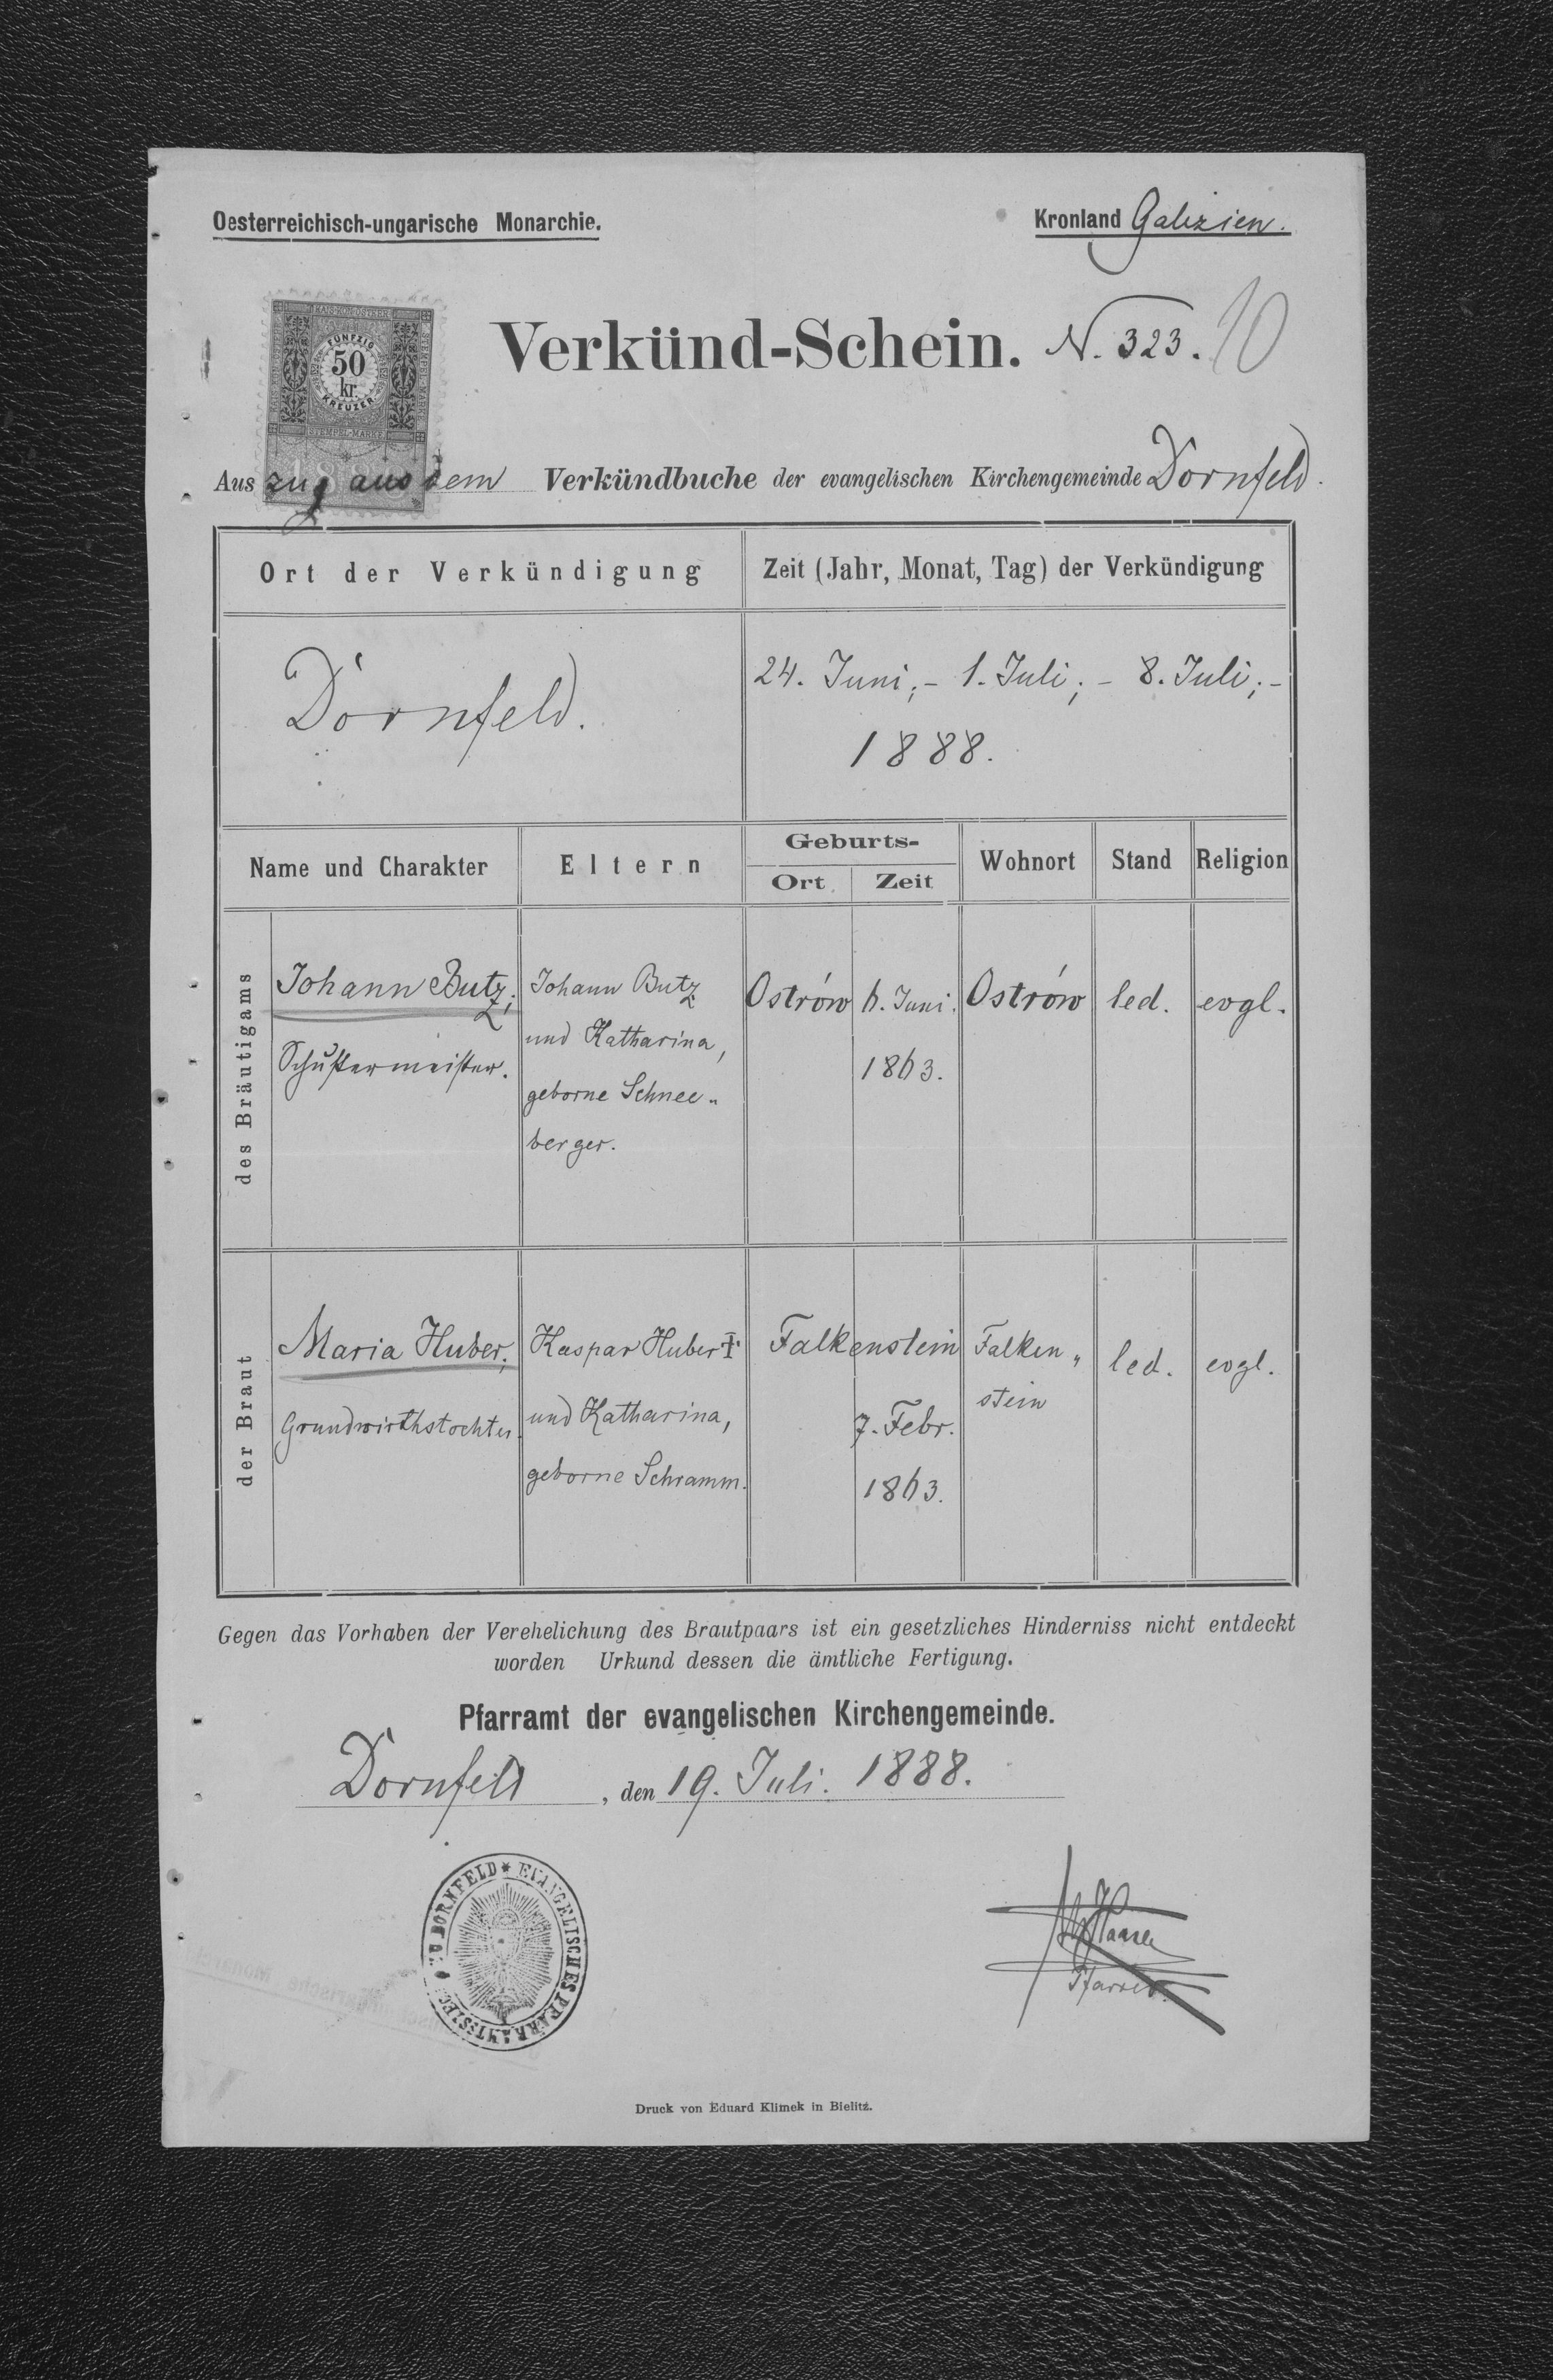 Oesterreichisch-ungarische Monarchie.
Kronland Galizien.
KREUZER
FÜNFZIG
50
kr.
STEMPEL-MARKE
Verkünd-Schein. N. 323. 10
Auszug aus dem Verkündbuche der evangelischen Kirchengemeinde Dornfeld.
Ort der Verkündigung
Zeit (Jahr, Monat, Tag) der Verkündigung
Dornfeld.
24. Juni; - 1. Juli; - 8. Juli; -
1888.
Name und Charakter
Eltern
Geburts-
Ort
Zeit
Wohnort
Stand
Religion
des Bräutigams
Johann Butz;
Schustermeister.
Johann Butz
und Katharina,
geborne Schnee„
berger.
Ostrów
6. Juni.
1863.
Ostrów
led.
evgl.
der Braut
Maria Huber;
Grundwirthstochter.
Kaspar Huber †
und Katharina,
geborne Schramm.
Falkenstein
7. Febr.
1863.
Falken„
stein
led.
evgl.
Gegen das Vorhaben der Verehelichung des Brautpaars ist ein gesetzliches Hinderniss nicht entdeckt
worden Urkund dessen die ämtliche Fertigung.
Pfarramt der evangelischen Kirchengemeinde.
Dornfeld, den 19. Juli. 1888.
EVANGELISCHES PFARRAMTSSIEGEL ZU DORNFELD
Pfarrer.
Druck von Eduard Klimek in Bielitz.